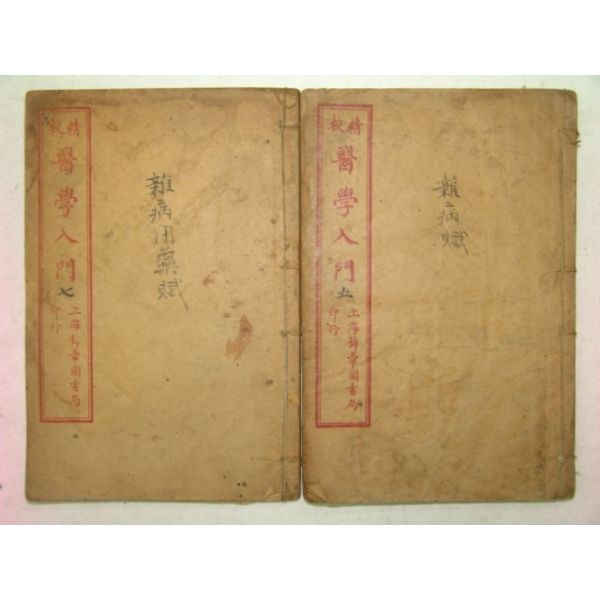 精校
醫學入門
七
上海錦章圖書局
印行
雜病用藥賦
精校
醫學入門
五
上海錦章圖書局
印行
雜病賦